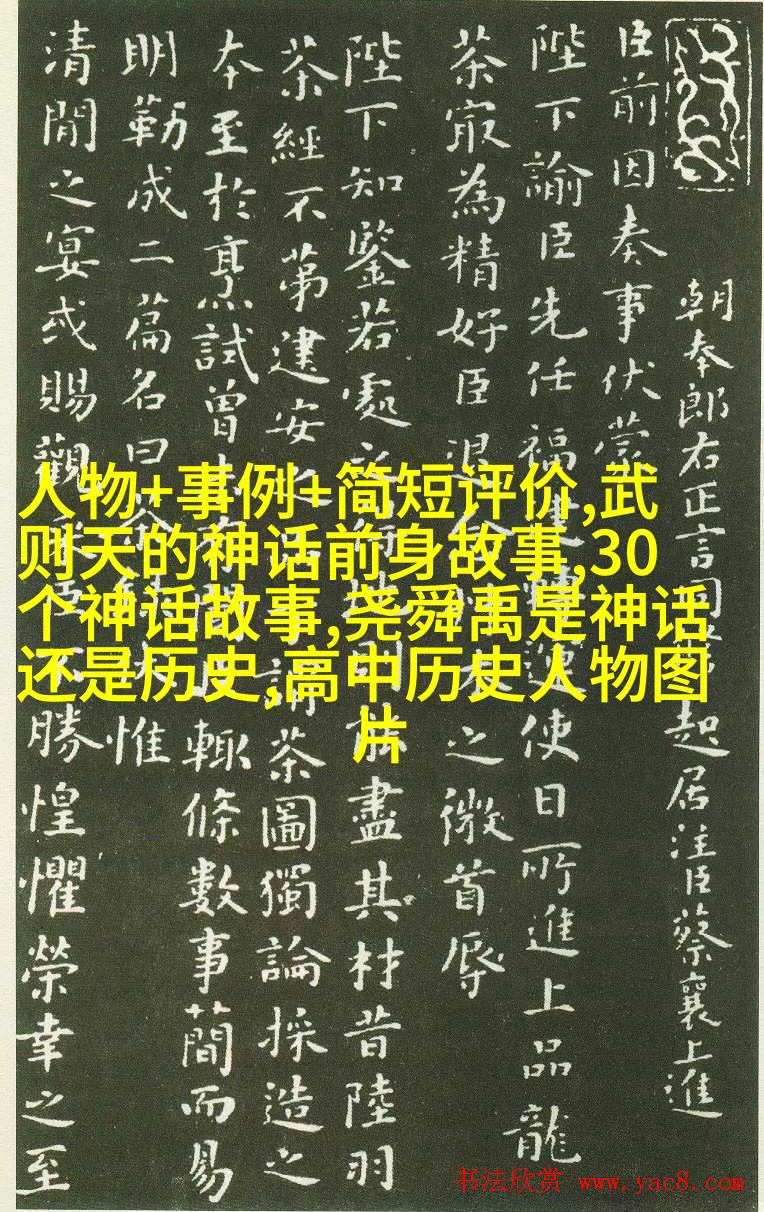 朝奉郎右正言同起居注臣蔡襄上進
臣前因奏事伏蒙
陛下諭臣先任福建轉運使日所進上品龍
茶㝡為精好臣退之微首辱
陛下知鑒若處地則能盡其材昔陸羽
茶經不第建安謂茶圖獨論採造之
本至於烹試曾輒條數事簡而易
明勒成二篇名曰惟
清閒之宴或賜觀臣不勝惶懼榮幸之至
人物+事例+简短评价,武
则天的神话前身故事,30
个神话故事,尧舜禹是神话
还是历史,高中历史人物图
片
书法欣赏 www.yac8.com